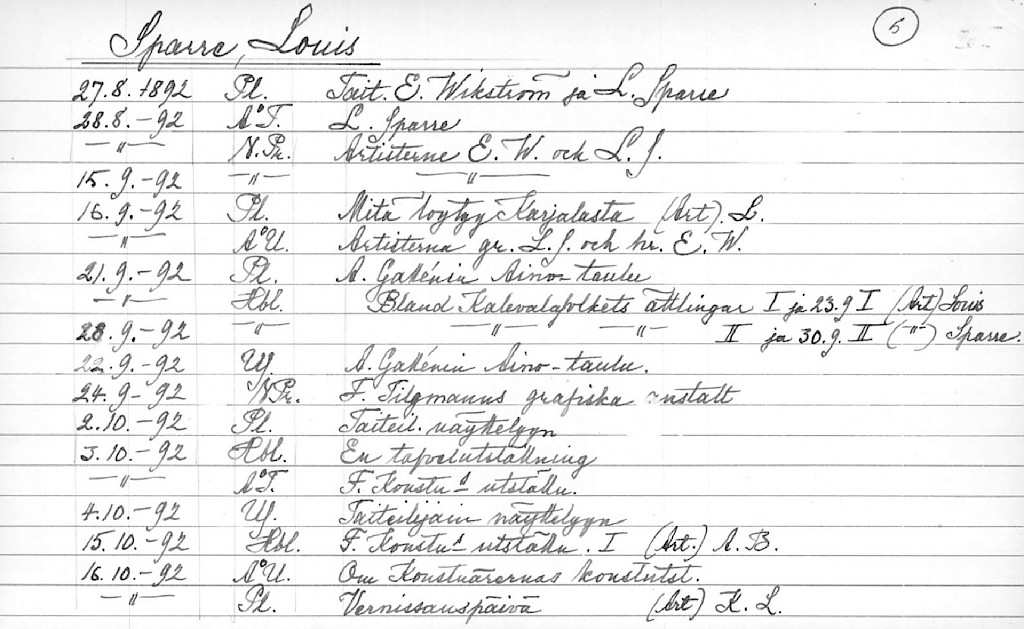 5
Sparre, Louis
27.8.1892 Pl. Tait. E. Wikström ja L. Sparre
28.8.-92 ÅT. L. Sparre
—"— N.Pr. Artisterne E. W. och L. S.
15.9.-92 —"— —"—
16.9.-92 Pl. Mitä löytyy Karjalasta (Art). L.
—"— ÅU. Artisterna gr. L. S. och hr. E. W.
21.9.-92 Pl. A. Gallénin Aino-taulu
—"— Hbl. Bland Kalevalafolkets ättlingar I ja 23.9 I (Art) Louis
28.9.-92 —"— —"— —"— II ja 30.9. II (-"-) Sparre.
22.9.-92 U.S. A. Gallénin Aino-taulu.
24.9-92 N.Pr. F. Tilgmanns grafiska anstalt
2.10.-92 Pl. Taiteil. näyttelyyn
3.10.-92 Hbl. En tafvelutställning
—"— ÅT. F. Konstn:s utställn.
4.10.-92 U.S. Taiteilijain näyttelyyn
15.10.-92 Hbl. F. Konstn:s utställn. I (Art.) A. B.
16.10.-92 ÅU. Om Konstnärernas konstutst.
—"— Pl. Vernissauspäivä (Art) K. L.